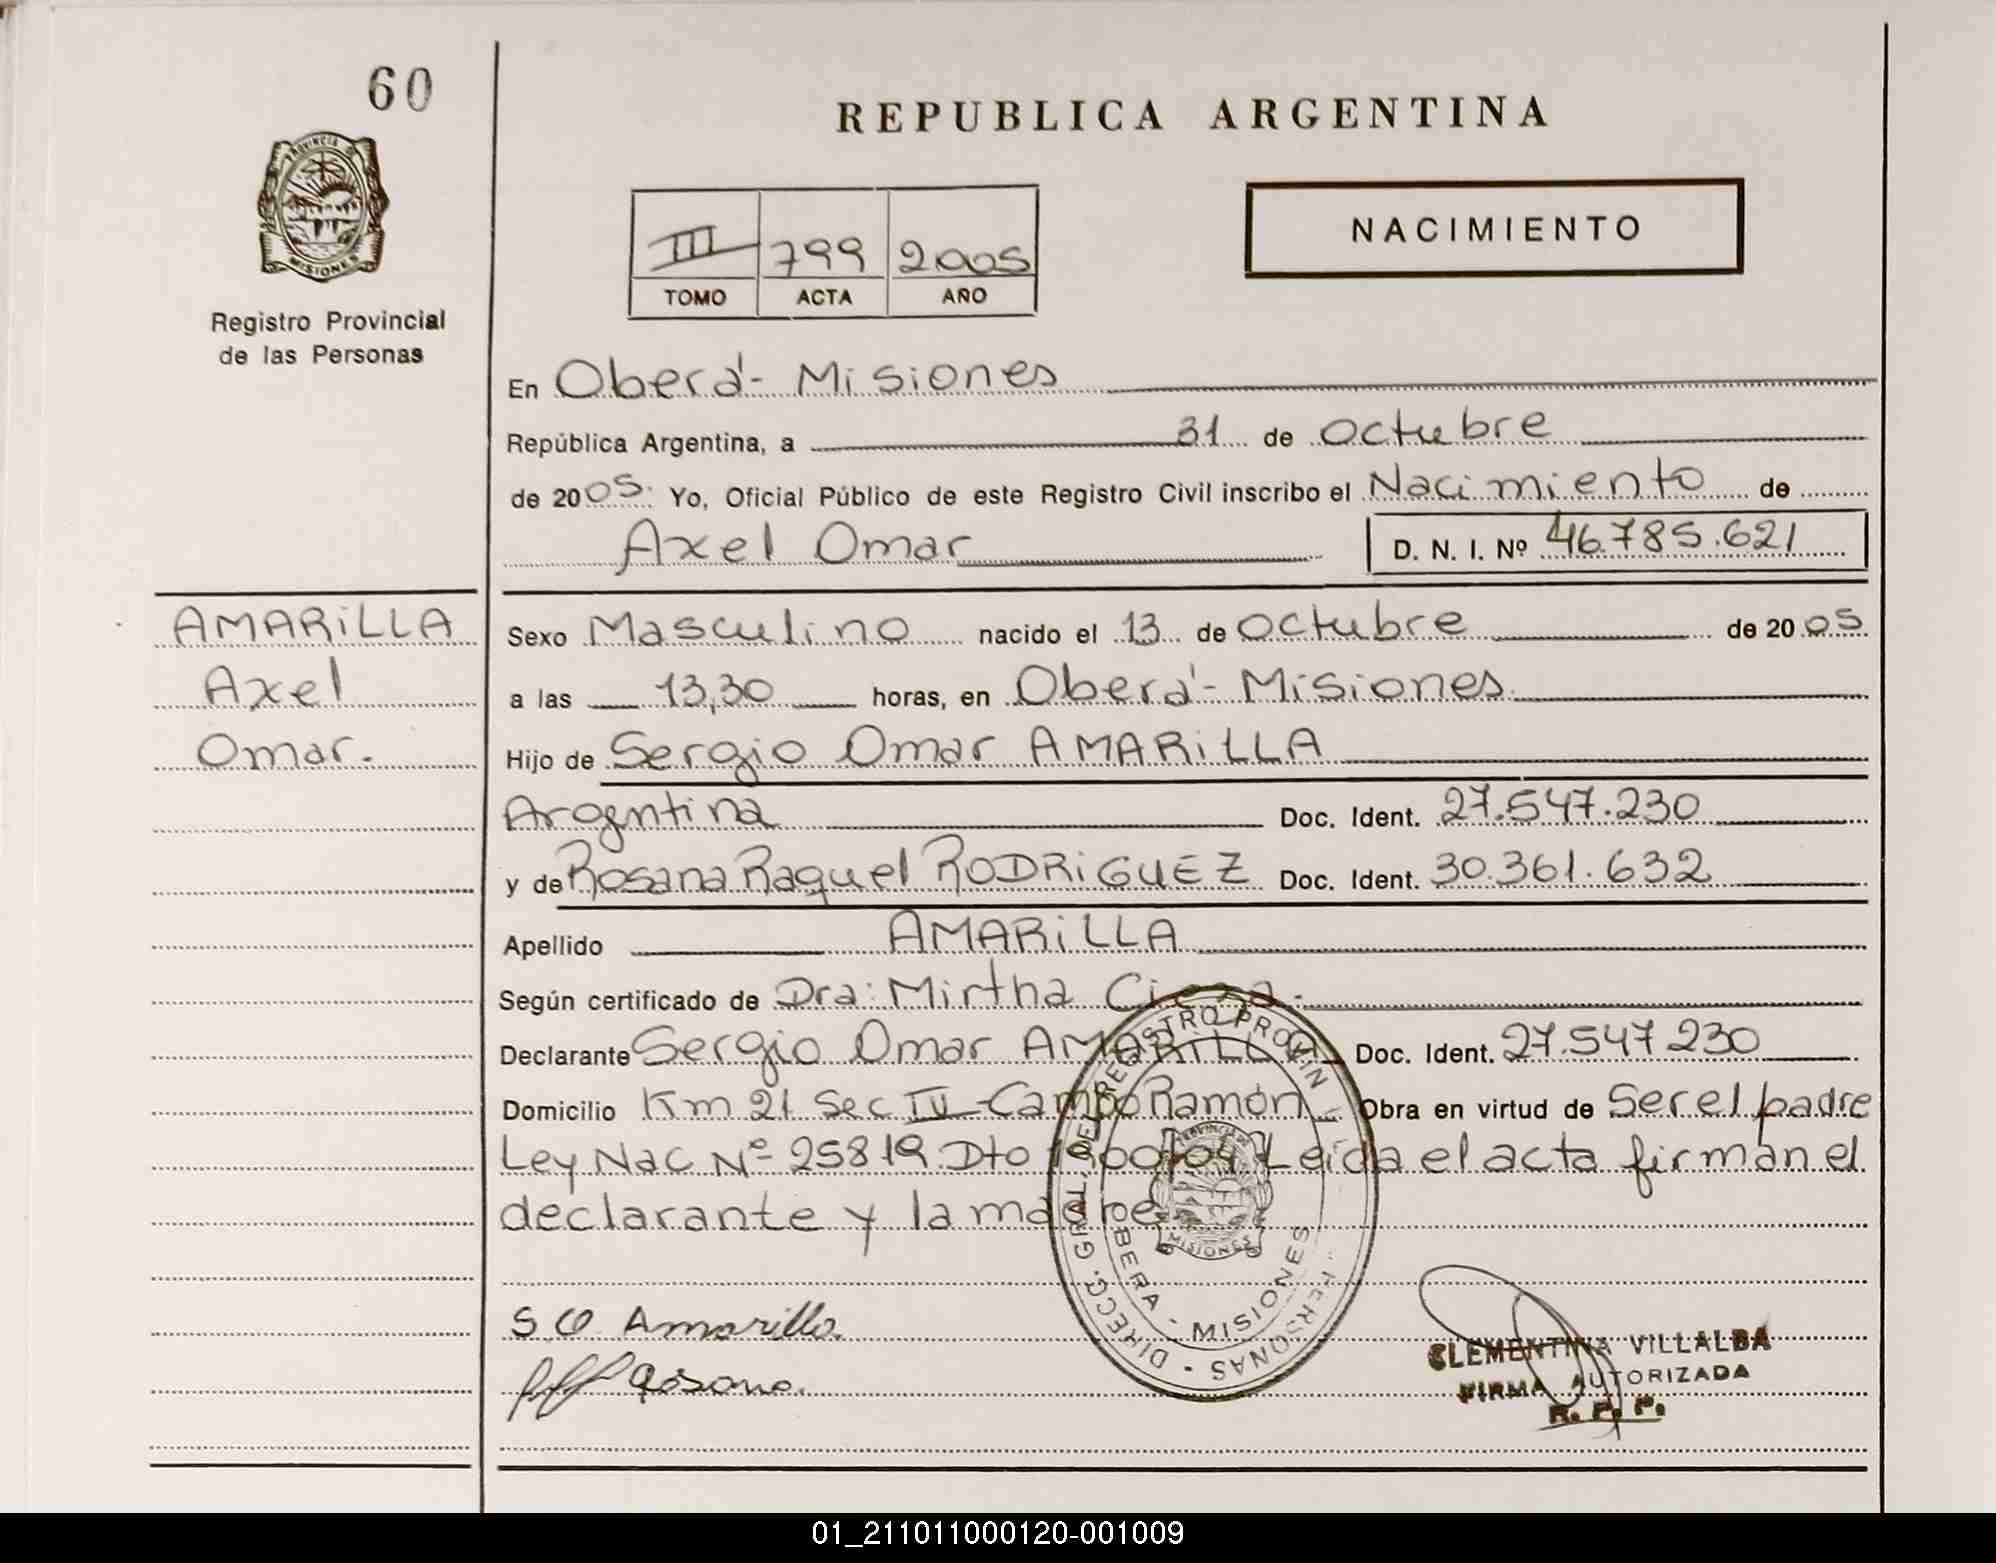 60
REPUBLICA ARGENTINA
PROVINCIA DE
MISIONES
Registro Provincial
de las Personas
NACIMIENTO
III 799 2005
TOMO ACTA AÑO
En Oberá - Misiones
República Argentina, a 31 de octubre
de 2005. Yo, Oficial Público de este Registro Civil inscribo el Nacimiento de
Axel Omar D. N. I. Nº 46.785.621
AMARiLLA
Axel
Omar.
Sexo Masculino nacido el 13 de octubre de 2005
a las 13,30 horas, en Oberá - Misiones
Hijo de Sergio Omar AMARiLLA
Argentina Doc. Ident. 27.547.230
y de Rosana Raquel RODRiGUEZ Doc. Ident. 30.361.632
Apellido AMARiLLA
Según certificado de Dra: Mirtha
Declarante Sergio Omar AMARiLLA Doc. Ident. 27.547.230
Domicilio Km 21 Sec IV - Campo Ramón Obra en virtud de Ser el padre
Ley Nac Nº 25819. Dto Leída el acta firman el
declarante y la madre
S O Amarilla.
Rosana.
DIRECC. GRAL. DEL REGISTRO PROVIN PERSONAS
OBERA - MISIONES
PROVINCIA DE
MISIONES
CLEMENTINA VILLALBA
FIRMA AUTORIZADA
R. P. P.
01_211011000120-001009